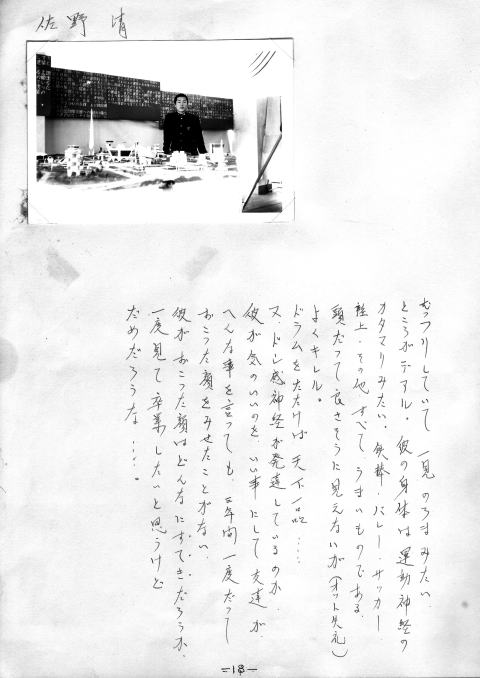 佐野 清
むっつりしていて 一見 のろまみたい.
ところがデアル. 彼の身体は 運動神経の
カタマリみたい. 鉄棒・バレー・サッカー.
陸上・その他 すべて うまいものである.
頭だって 良さそうに見えないが(オット失礼)
よくキレル。
ドラムをたたけば 天下一品 ‥‥
又、ドン感神経が発達しているのか.
彼が気のいいのを いい事にして 友達が
へんな事を言っても、三年間 一度だって
おこった顔をみせたことがない.
彼がおこった顔はどんなにすてきだろうか.
一度見て 卒業したいと思うけど
だめだろうな ‥‥。
-18-